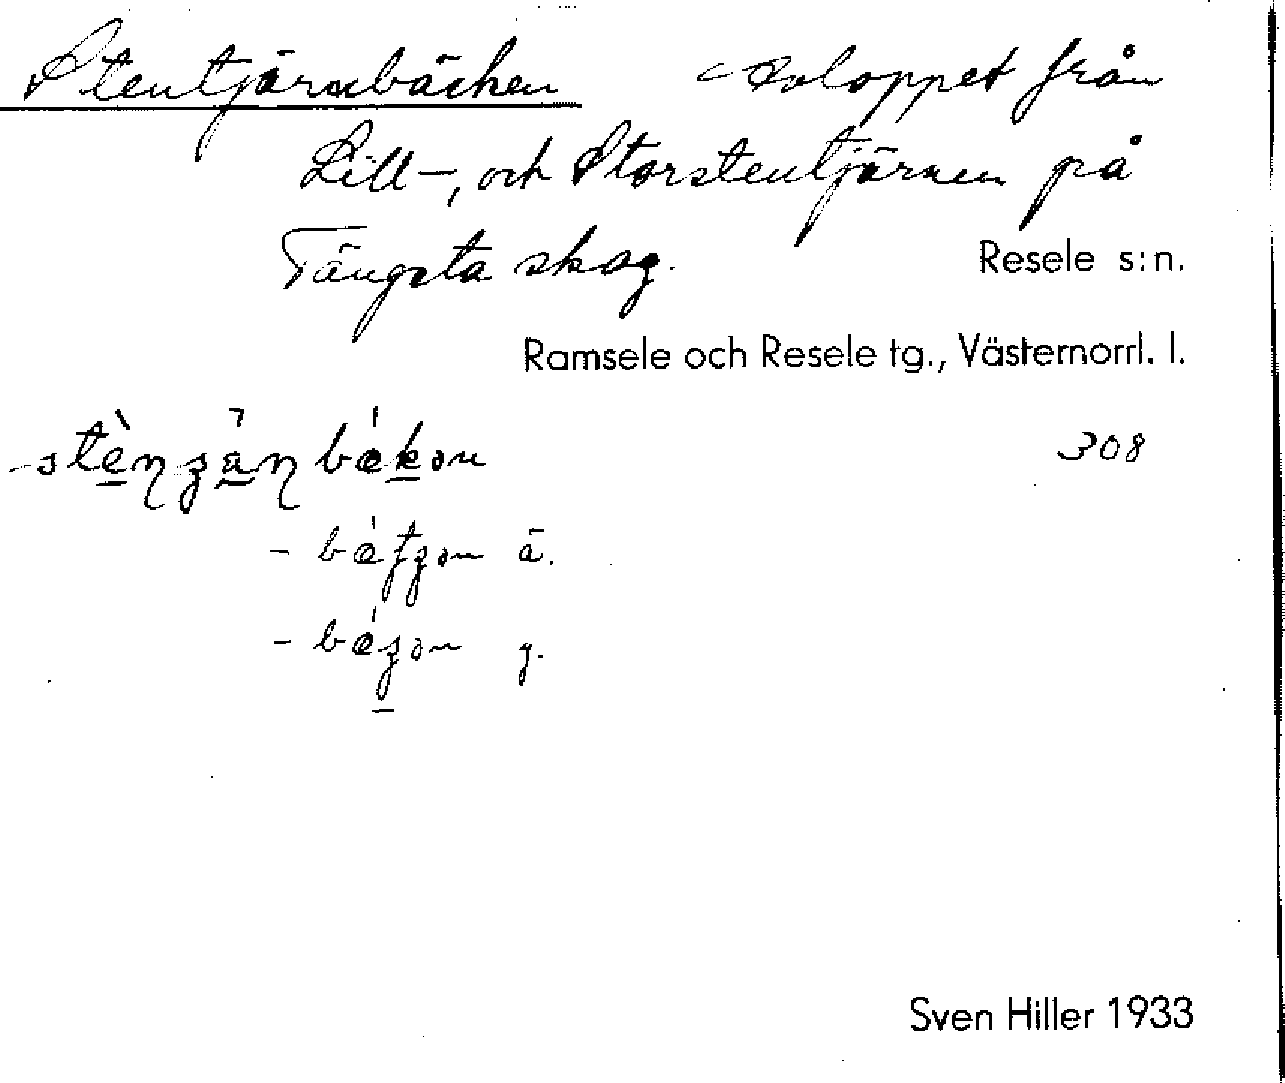 Stentjärnbäcken avloppet från
Lill-, och Storstentjärnen på
Tängsta skog. Resele s:n.
Ramsele och Resele tg., Västernorrl. l.
308
- ä.
- g.
Sven Hiller 1933